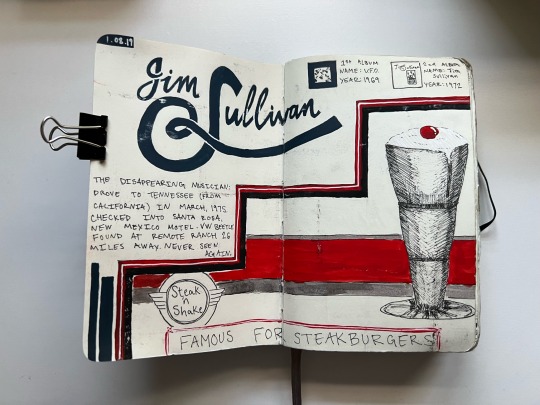 1.08.19
Jim
Sullivan
THE DISAPPEARING MUSICIAN:
DROVE TO TENNESSEE (FROM
CALIFORNIA) IN MARCH, 1975
CHECKED INTO SANTA ROSA,
NEW MEXICO MOTEL. VW BEETLE
FOUND AT REMOTE RANCH 26
MILES AWAY. NEVER SEEN
AGAIN.
1ST ALBUM
NAME: U.F.O.
YEAR: 1969
2ND ALBUM
NAME: JIM
SULLIVAN
YEAR: 1972
Steak
'n
Shake
FAMOUS FOR STEAKBURGERS